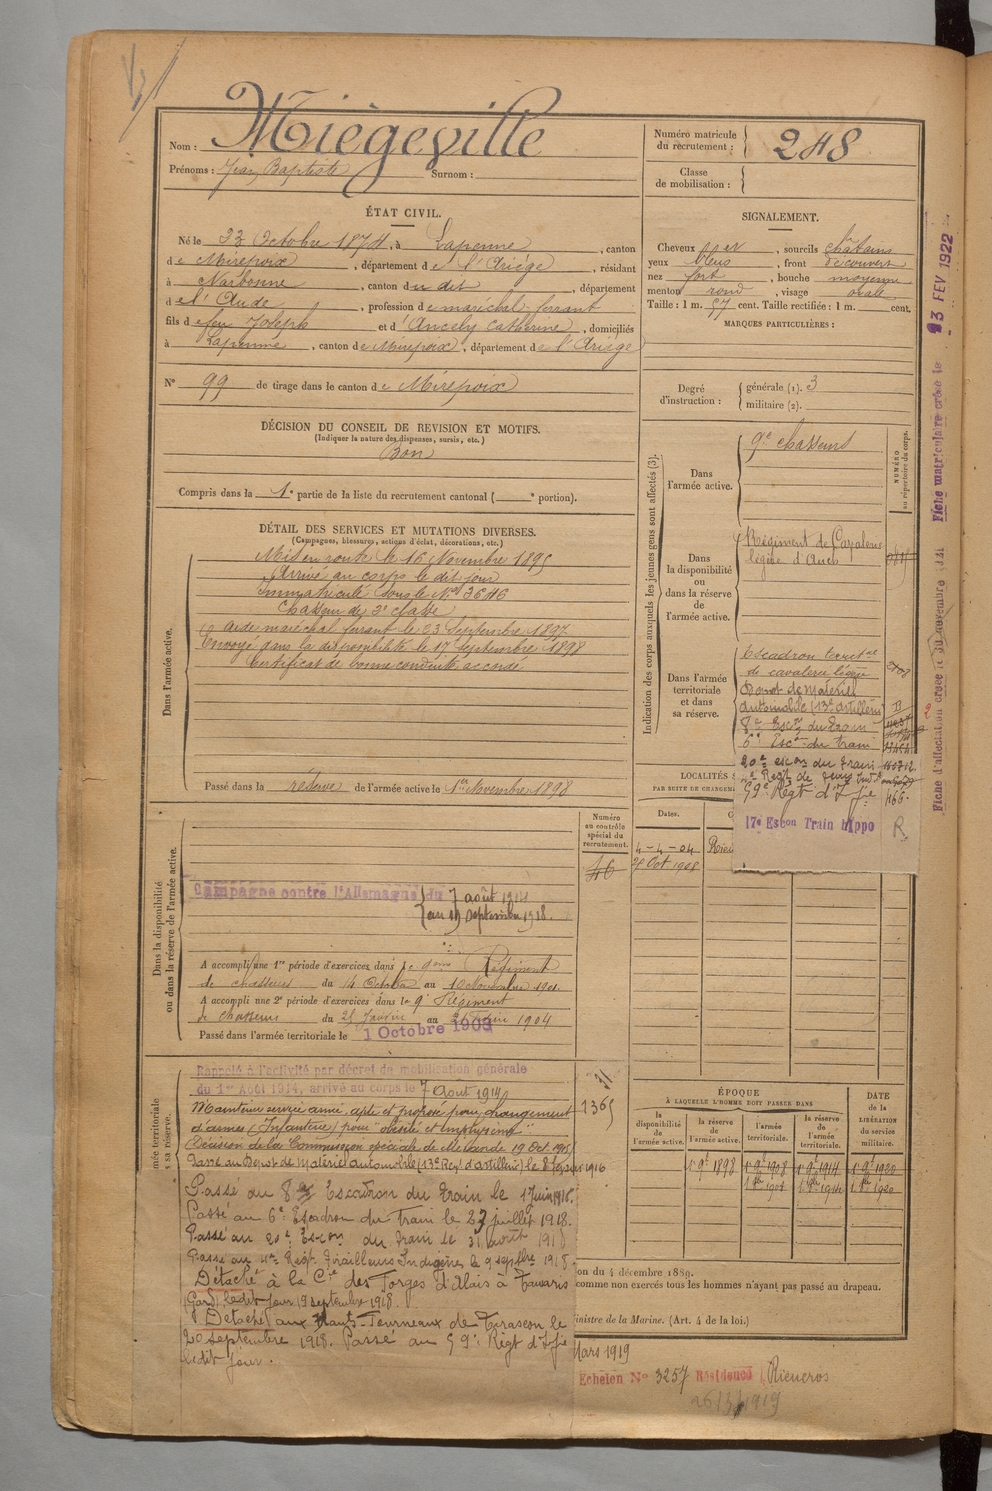 Nom : Miègeville
Prénoms : Jean Baptiste Surnom :
Numéro matricule du recrutement : 248
Classe de mobilisation :
ÉTAT CIVIL.
Né le 23 Octobre 1874, à Lapenne, canton
de Mirepoix, département de l'Ariège, résidant
à Narbonne, canton du dit, département
de l'Aude, profession de maréchal ferrant
fils de feu Joseph et d'Ancely Catherine, domiciliés
à Lapenne, canton de Mirepoix, département de l'Ariège
N° 99 de tirage dans le canton de Mirepoix
DÉCISION DU CONSEIL DE REVISION ET MOTIFS.
(Indiquer la nature des dispenses, sursis, etc.)
Bon
Compris dans la 1e partie de la liste du recrutement cantonal ( e portion).
SIGNALEMENT.
Cheveux , sourcils châtains
yeux bleus, front découvert
nez fort, bouche moyenne
menton rond, visage ovale
Taille : 1 m. 57 cent. Taille rectifiée : 1 m. cent.
MARQUES PARTICULIÈRES :
Degré d'instruction : générale (1). 3
militaire (2).
DÉTAIL DES SERVICES ET MUTATIONS DIVERSES.
(Campagnes, blessures, actions d'éclat, décorations, etc.)
Dans l'armée active.
Mis en route le 16 Novembre 1895
Arrivé au corps le dit jour
Immatriculé sous le N° 3646
Chasseur de 2e classe
aide maréchal ferrant le 23 Septembre 1897
Envoyé dans la disponibilité le 17 septembre 1898
Certificat de bonne conduite accordé
Passé dans la réserve de l'armée active le 1er Novembre 1898
Indication des corps auxquels les jeunes gens sont affectés (3).
NUMÉRO au répertoire du corps.
Dans l'armée active.
9e chasseurs
Dans la disponibilité ou dans la réserve de l'armée active.
Régiment de Cavalerie
légère d'Auch
Dans l'armée territoriale et dans sa réserve.
Escadron territal
de cavalerie légère
Dépôt de Matériel
automobile (13e artillerie)
8e Escon du Train
6e Escon du train
20e escon du Train
59e Régt d'Ifie 466.
17e Escon Train hippo R.
LOCALITÉS
PAR SUITE DE CHANGEM
Dates.
4-4-04
25 Oct 1908
Dans la disponibilité ou dans la réserve de l'armée active.
Numéro au contrôle spécial du recrutement.
46
Campagne contre l'Allemagne du 7 août 1914
au 19 septembre 1918.
A accompli une 1re période d'exercices dans le 9eme Régiment
de chasseurs du 14 Octobre au 10 Novembre 1901.
A accompli une 2e période d'exercices dans le 9e Régiment
de chasseurs du 25 au 1904
Passé dans l'armée territoriale le 1 Octobre 1908
Rappelé à l'activité par décret de mobilisation générale
du 1er Août 1914, arrivé au corps le 7 Août 1914
Maintenu service armé, apte et proposé pour changement
d'arme (Infanterie) pour "obésité et emphysème"
Décision de la Commission spéciale de Mirande 19 Oct. 1915
Passé au Dépôt de Matériel automobile (13e Regt d'artillerie) le 1916
Passé au 8e Escadron du Train le 1 Juin 1918.
Passé au 6e Escadron du Train le 27 juillet 1918.
Passé au 20e Escon du Train le 31 août 1918
Passé au Régt Tirailleurs Indigènes le 9 septbre 1918.
Détaché à la Cie des Forges d'Alais à Tamaris
(Gard) le dit jour 19 septembre 1918.
Détaché aux Hauts-Fourneaux de Tarascon le
20 septembre 1918. Passé au 59e Régt d'Ifie
le dit jour.
1365
ÉPOQUE
À LAQUELLE L'HOMME DOIT PASSER DANS
la disponibilité de l'armée active.
la réserve de l'armée active.
l'armée territoriale.
la réserve de l'armée territoriale.
DATE de la LIBÉRATION du service militaire.
1er 9e 1898 1er 9e 1908 1er 9e 1914 1er 9e 1920
on du 4 décembre 1889.
comme non exercés tous les hommes n'ayant pas passé au drapeau.
inistre de la Marine. (Art. 4 de la loi.)
Mars 1919
Echelon N° 3257 Résidence Rieucros
26/3/1919
Fiche d'affectation créée le novembre
Fiche matriculaire créée le 23 FEV 1922